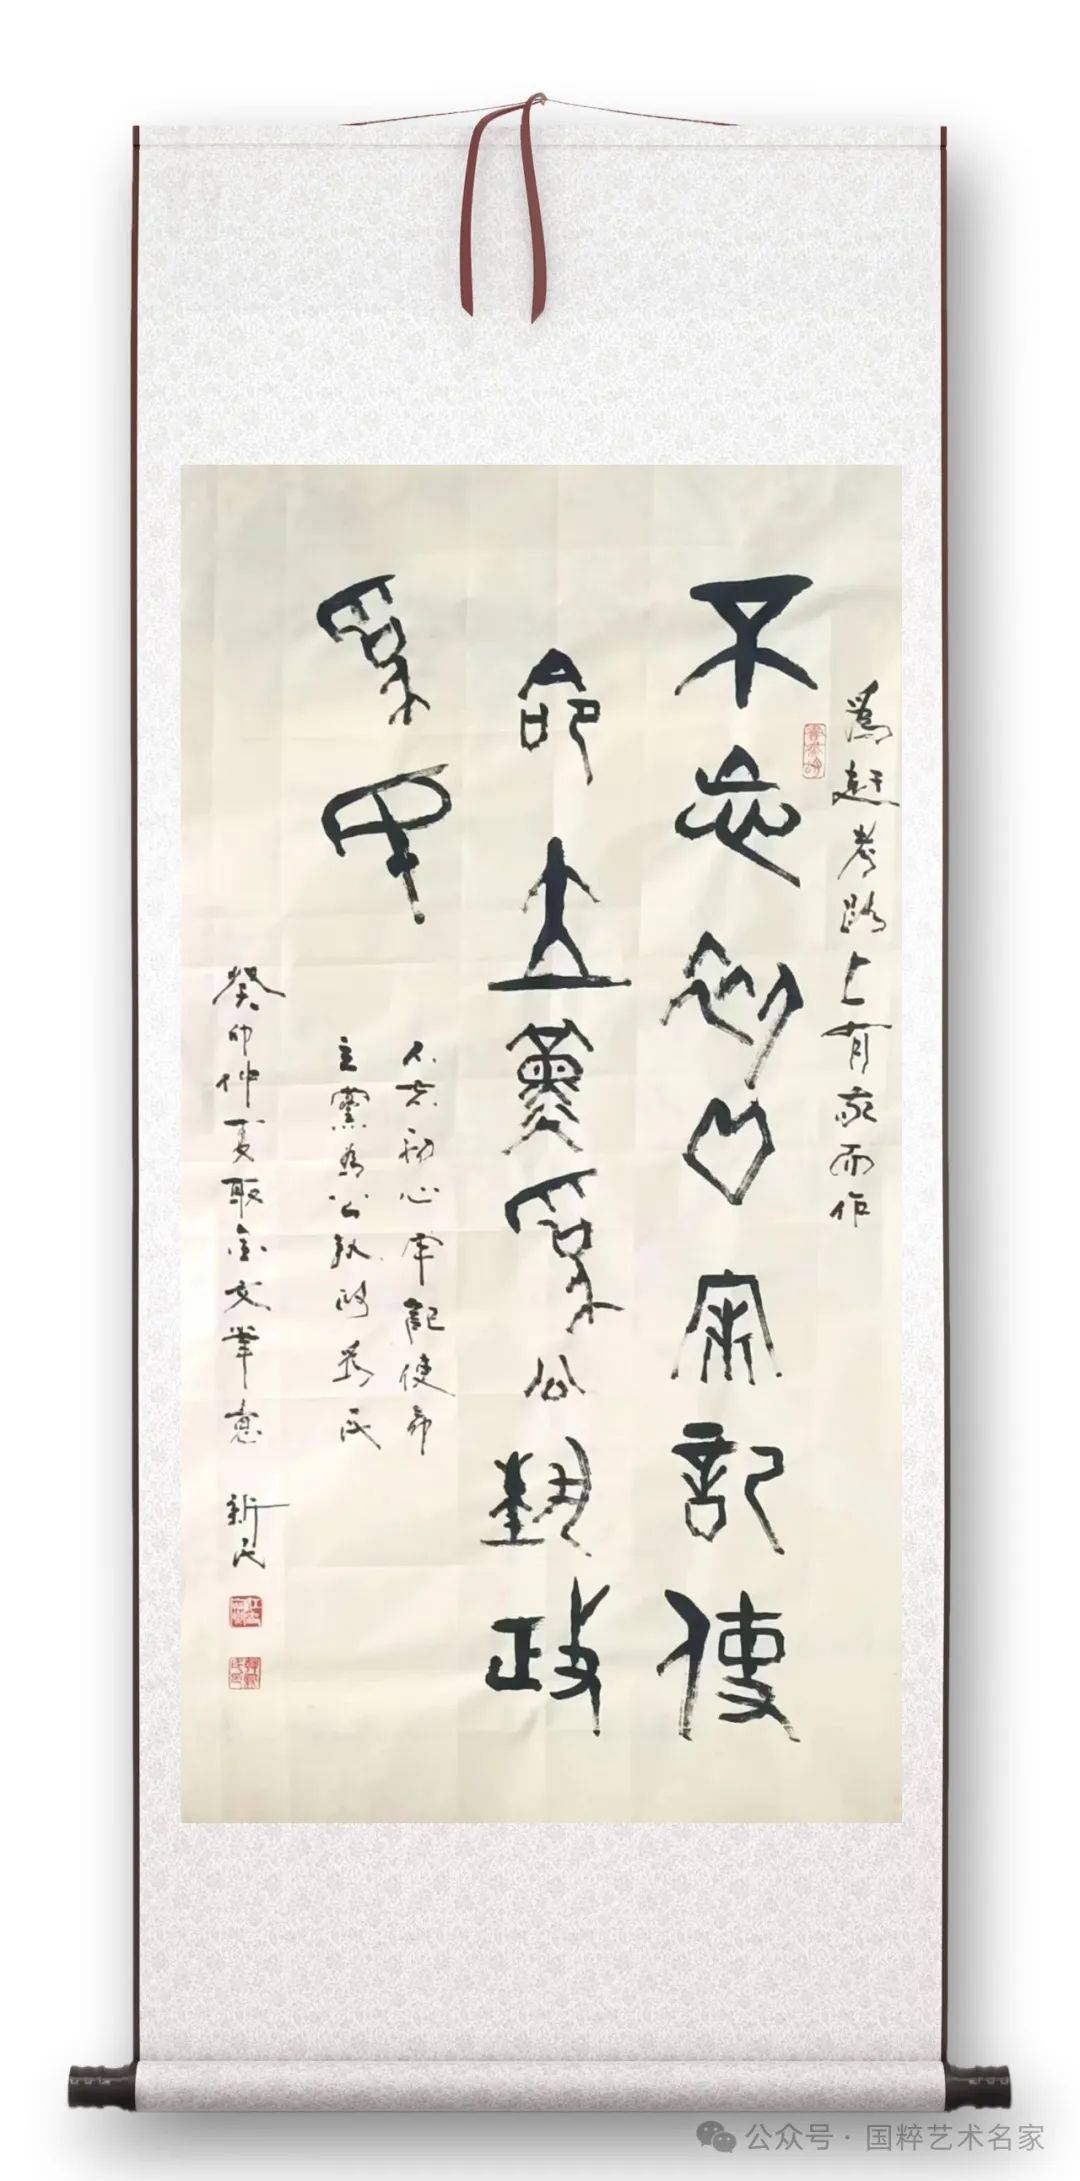 為趕考路上有感而作
不忘初心牢記使
命立黨為公執政
為民
不忘初心牢記使命
立黨為公執政為民
癸卯仲夏取金文筆意 新民
公众号·国粹艺术名家